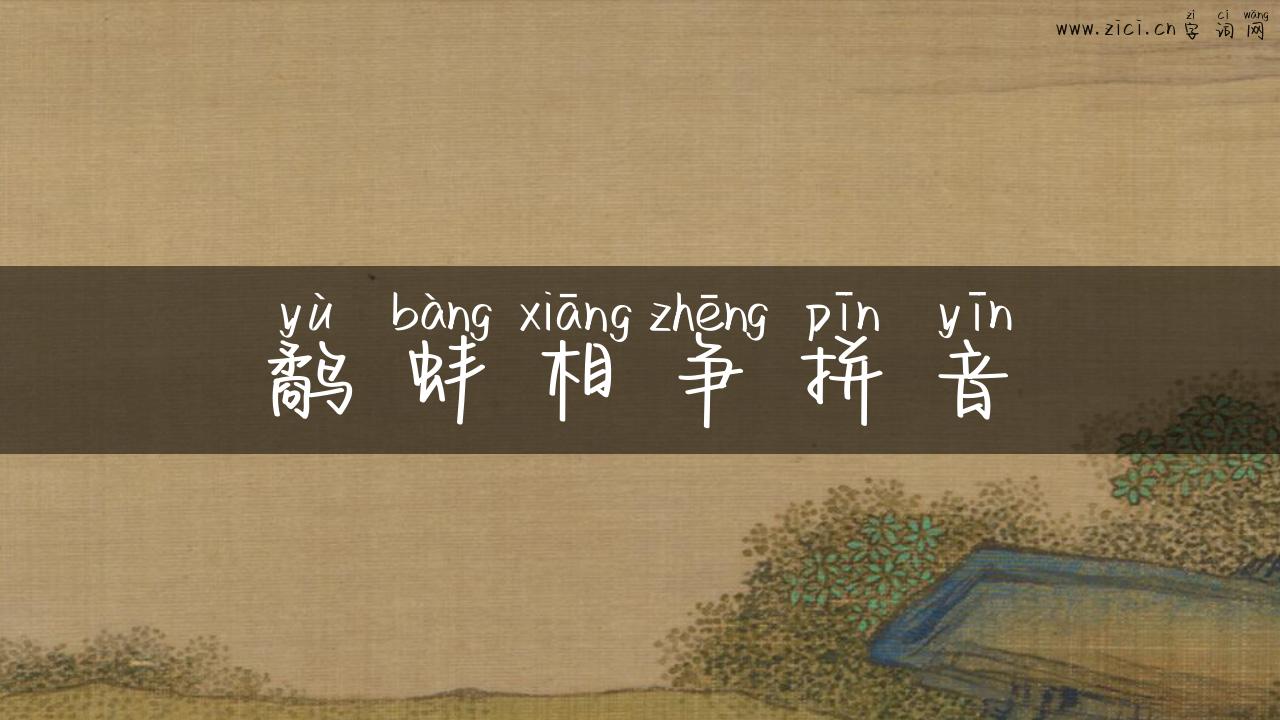 zì cí wǎng
www.zici.cn 字 词 网
yù bàng xiāng zhēng pīn yīn
鹬 蚌 相 争 拼 音